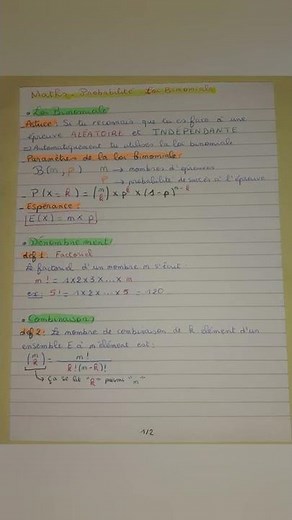 Maths - Probabilité Loi Binomiale
• Loi Binomiale
- Astuce: Si tu reconnais que tu as face à une
épreuve ALÉATOIRE et INDÉPENDANTE
⇒ Automatiquement tu utilises la loi binomiale
- Paramètres de la loi binomiale:
B(n, p) n → nombres d'épreuves
p → probabilité de succès à l'épreuve
- P(X = k) = (n k) × p^k × (1-p)^(n-k)
- Espérance:
E(X) = n × p
• Dénombrement
déf 1: Factoriel
Le factoriel d'un nombre n s'écrit
n! = 1×2×3×...×n
ex: 5! = 1×2×...×5 = 120
• Combinaison
déf 2: Le nombre de combinaison de k élément d'un
ensemble E à n élément est:
(n k) = n! / k!(n-k)!
↳ ça se lit "k" parmi "n"
1/2